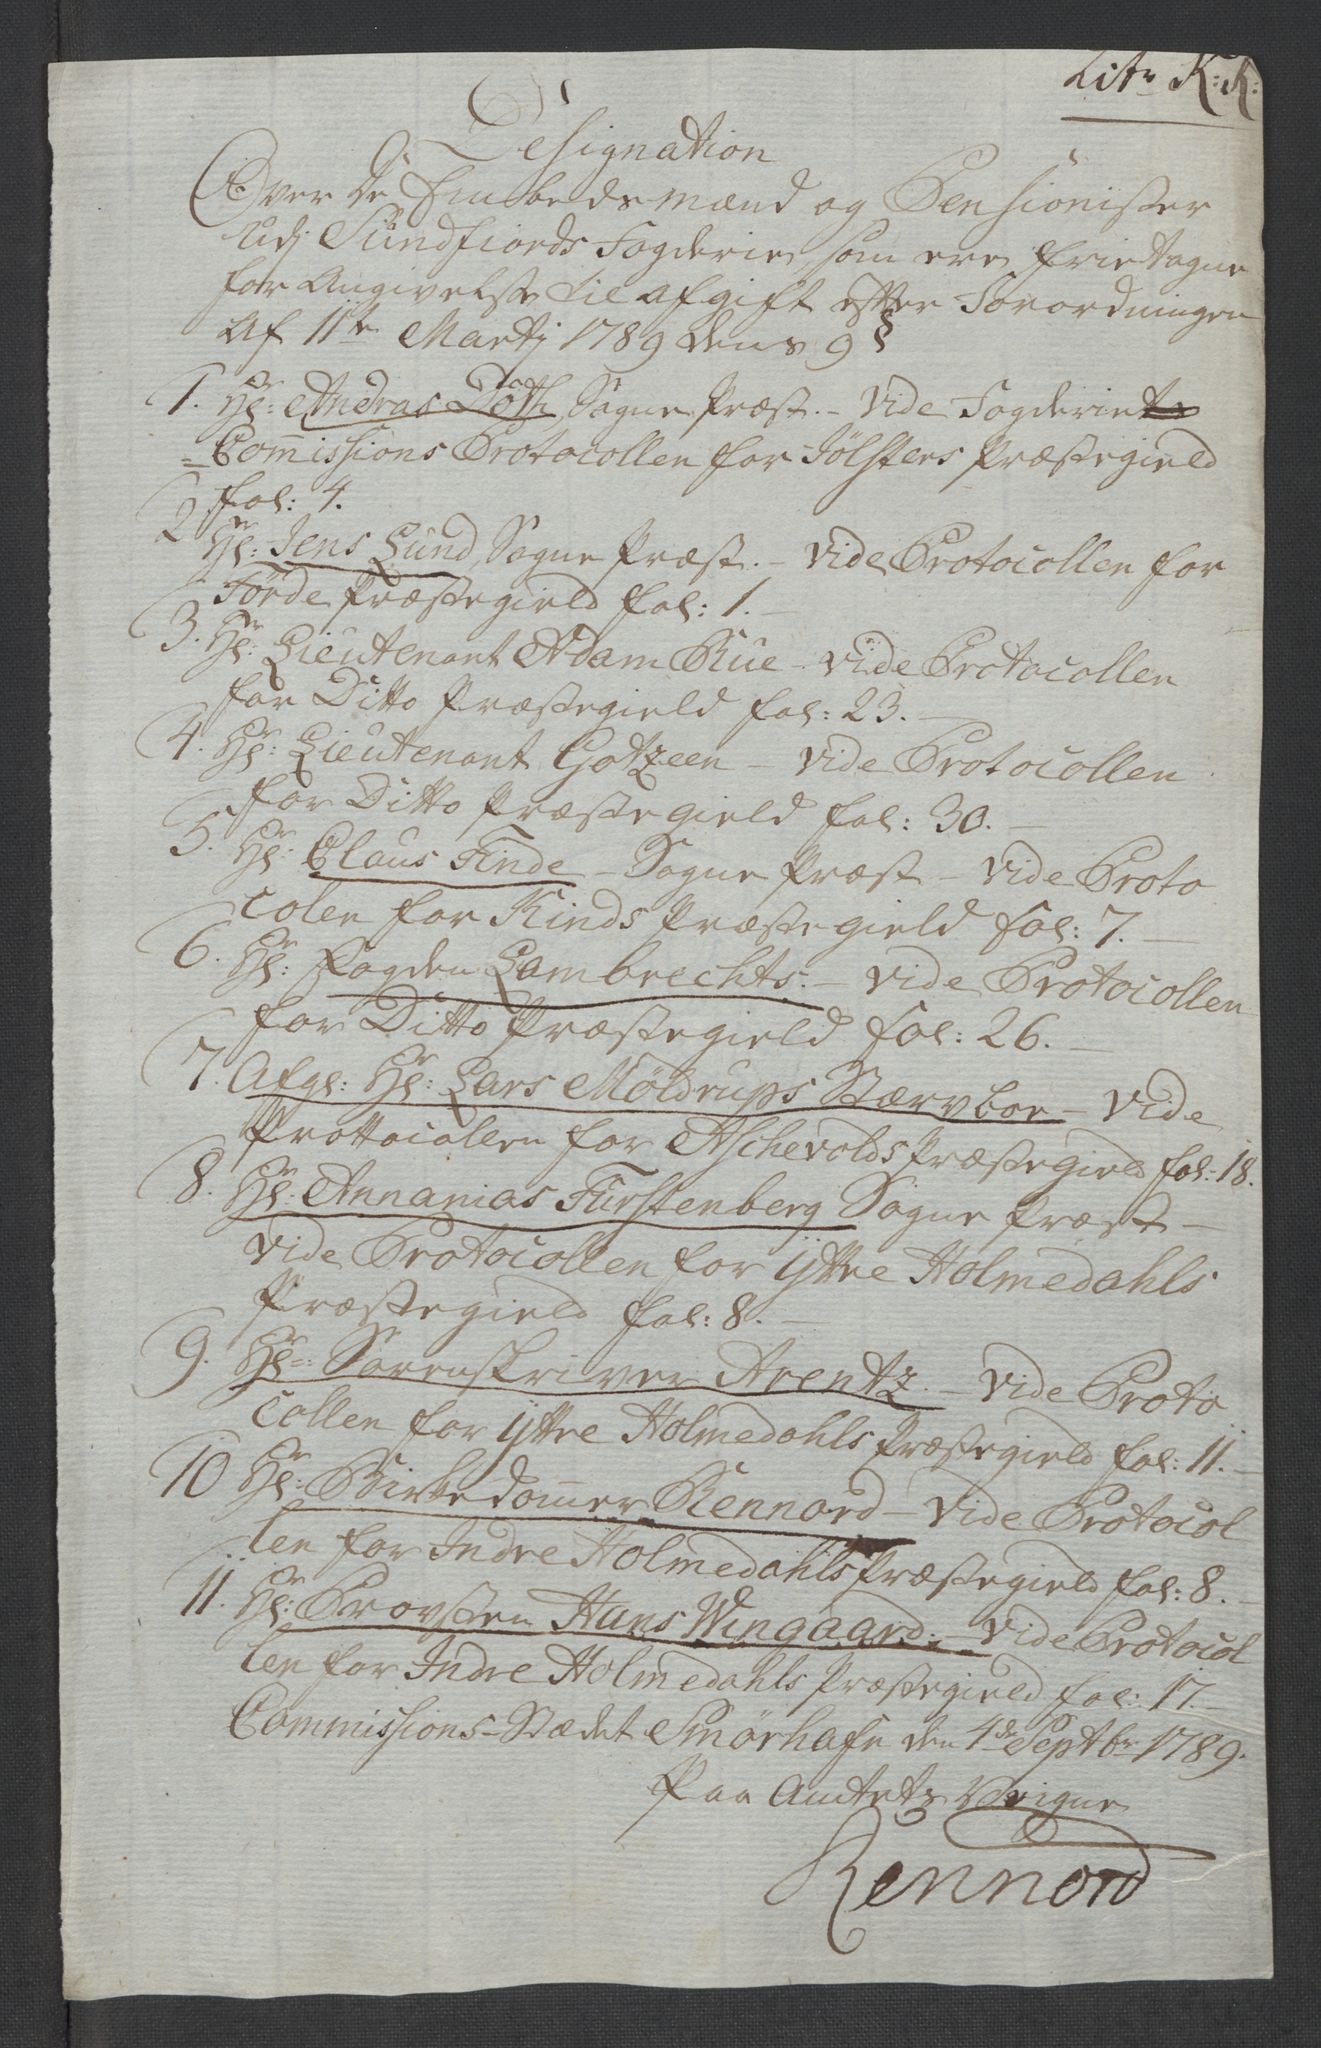 Litr K: K:
Designation
Over De Embedsmænd og Pensionister
udj Sundfiords Fogderie, som ere frietagne
for Angivelse til afgift efter Forordningen
Af 11te Martj 1789 dens 9 §
1. Hr: Andreas Döth Sogne Præst. - Vide Fogderiets
Commissions Protocollen for Jölsters Præstegield
fol: 4.
2. Hr: Jens Lund, Sogne Præst. - Vide Protocollen for
Förde Præstegield fol: 1. -
3. Hr: Lieutenant Adam Rüe - vide Protocollen
for Ditto Præstegield fol: 23. -
4. Hr: Lieutenant Gotzeen - vide Protocollen
for Ditto Præstegield fol: 30. -
5. Hr: Claus Finde - Sogne Præst - vide Proto
colen for Kinds Præstegield fol: 7. -
6. Hr: Fogden Lambrechts. - vide Protocollen
for Ditto Præstegield fol: 26. -
7. Afg: Hr: Lars Möldrups Stærvboe - vide
Prottocollen for Aschevolds Præstegield fol: 18.
8. Hr: Annanias Fürstenberg Sogne Præst -
vide Protocollen for ÿttre Holmedahls
Præstegield fol: 8. -
9. Hr: Sorenskriver Arentz. - vide Proto
collen for ÿttre Holmedahls Præstegield fol: 11. -
10 Hr: Birkedommer Rennord - vide Protocol
len for Indre Holmedahls Præstegield fol: 8. -
11. Hr: Provsten Hans Wingaard. - vide Protocol
len for Indre Holmedahls Præstegield fol: 17. -
Commissions-Stædet Smörhafn den 4de Septbr 1789.
Paa Amtets Veigne
Rennord